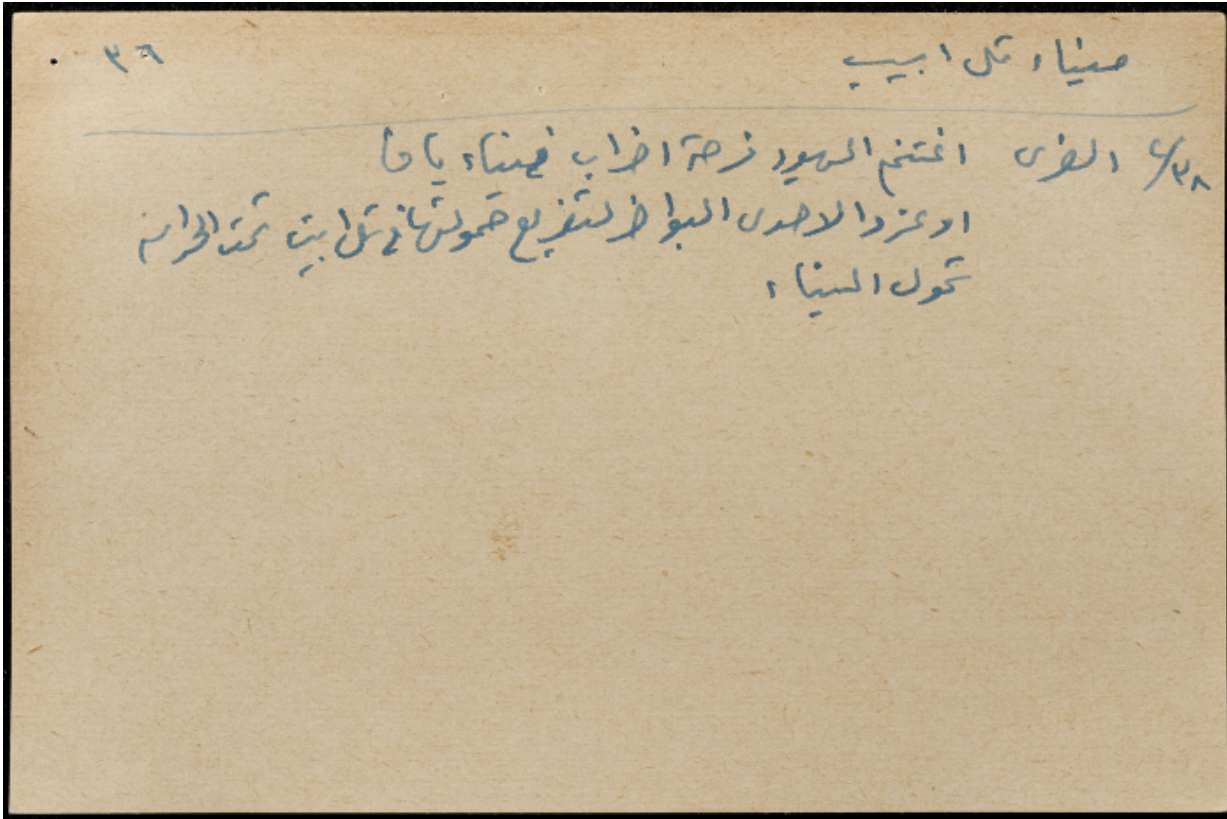 ميناء تل ابيب ٣٦
٤/٣٨ اغتنم اليهود فرصة اضراب في ميناء يافا
اوعزوا لاحدى البواخر لتفريغ حمولتها في تل ابيب تحت الحراسه
تحول الميناء